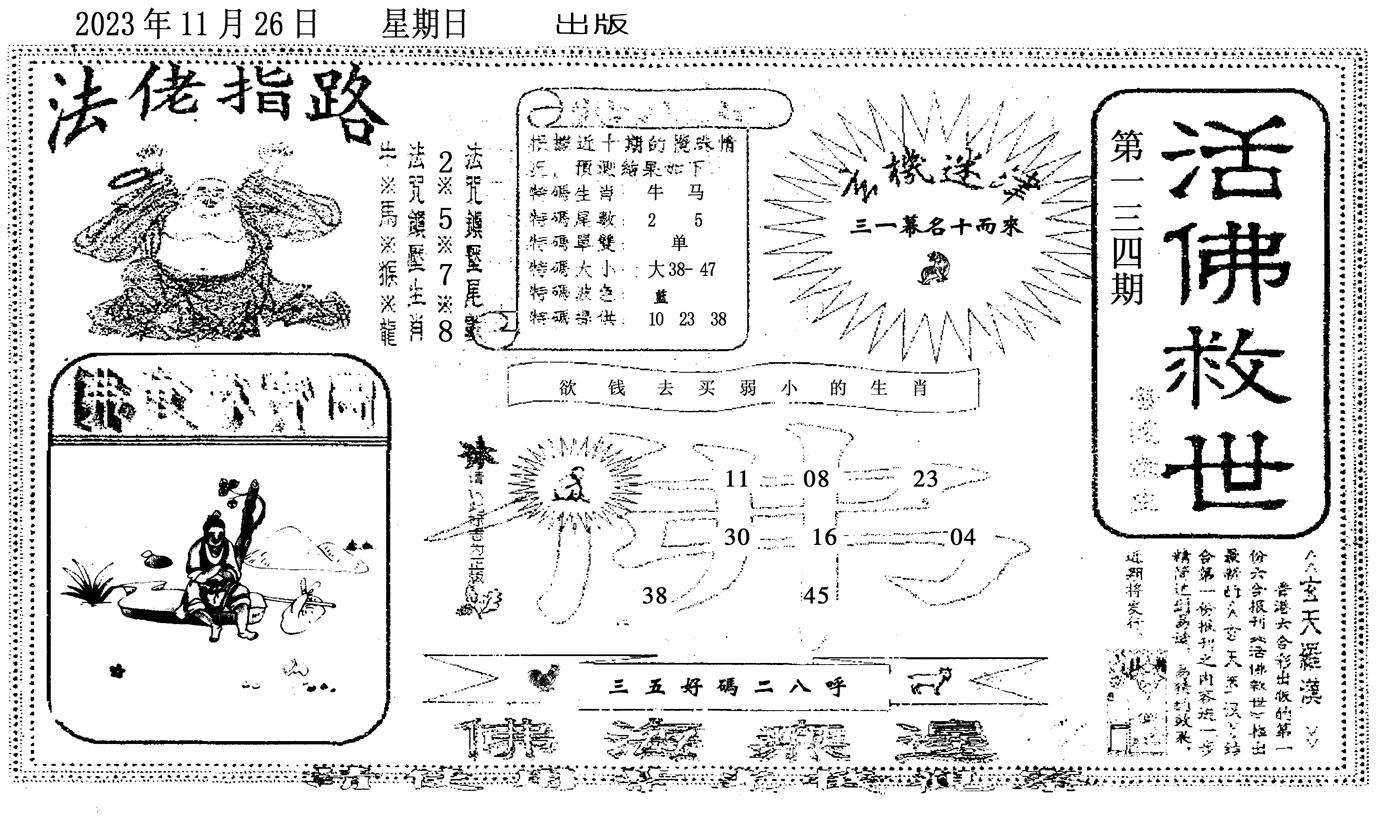 2023 年 11 月 26 日 星期日 出版
法佬指路
法咒鎮壓尾數
2※5※7※8
法咒鎮壓生肖
牛※馬※猴※龍
根據近十期的攪珠情
況，預測結果如下
特碼生肖： 牛 马
特碼尾數： 2 5
特碼單雙： 单
特碼大小：大38-47
特碼波色： 蓝
特碼提供： 10 23 38
三一幕名十而來
第一三四期
活佛救世
欲钱去买弱小的生肖
11 08 23
30 16 04
38 45
三五好碼二八呼
佛海無邊
玄天羅漢
香港六合彩出版的第一
份六合报刊《活佛救世》推出
合第一份报刊之内容进一步
近期将发行。